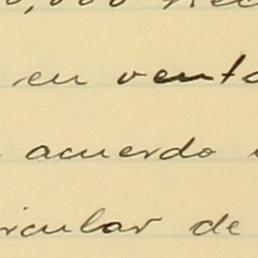 0,000 Hec
en venta
acuerdo
rcular de